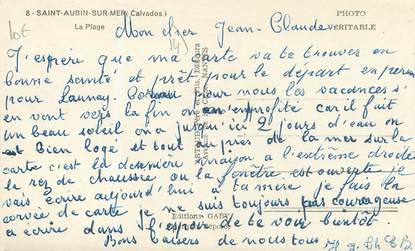 8 - SAINT-AUBIN-SUR-MER (Calvados)
La Plage
PHOTO
VÉRITABLE
Mon cher Jean-Claude
J'espère que ma carte va te trouver en
bonne santé et prêt pour le départ en
pour Launay. pour nous les vacances s'
en vont vers la fin on en profite car il fait
un beau soleil on a jusqu'ici 2 jours d'eau on
est bien logé et tout à près de la mer sur la
carte c'est la dernière maison à l'extrême droite
le rez de chaussée ou la fenêtre est ouverte je
vais écrire aujourd'hui à ta mère je fais la
corvée de carte je ne suis toujours pas courageuse
à écrire dans l'espoir de te voir bientôt
Bons baisers de nous tous
Editions GABY